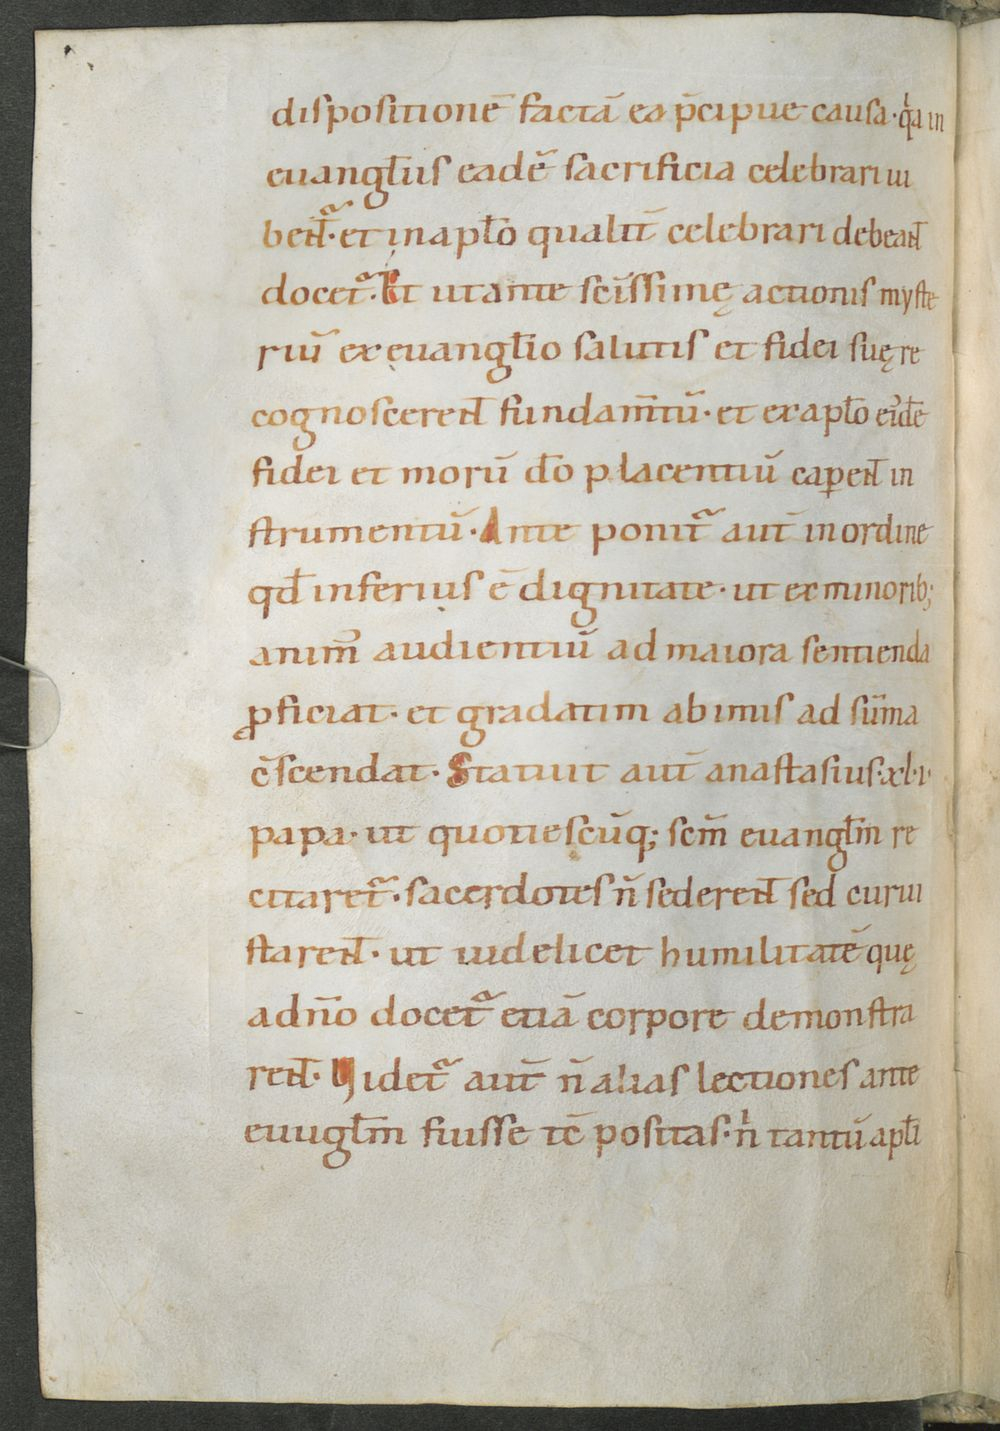 dispositionē factā ea p̄cipue causa· qͥa in
euangl̄iis eadē sacrificia celebrari iu
bent̄ᷓ· et in aplō qualit̄ celebrari debeant̄
docet᷑· Et ut ante scīssimę actionis myste
riū ex euangl̄io salutis et fidei suę re
cognoscerent̄ fundam̄tū· et ex aplō eiͮdē
fidei et morū dō placentiū caperent̄ in
strumentū· Ante ponit᷑ aut̄ in ordine
qd̄ inferius ē dignitate· ut ex minorib;
anim᷒ audientiū ad maiora sentienda
ꝓficiat· et gradatim ab imis ad sūma
c̄scendat· Statuit aut̄ anastasius· xl·i·
papa· ut quotiescūq; scm̄ euangl̄m re
citaret᷑· sacerdotes n̄ sederent̄ sed curui
starent̄· ut uidelicet humilitatē quę
a dn̄o docet᷑ etiā corpore demonstra
rent̄· Videt᷑ aut̄ n̄ alias lectiones ante
euugl̄m fuisse tc̄ positas· nͥ tantū apl̄i